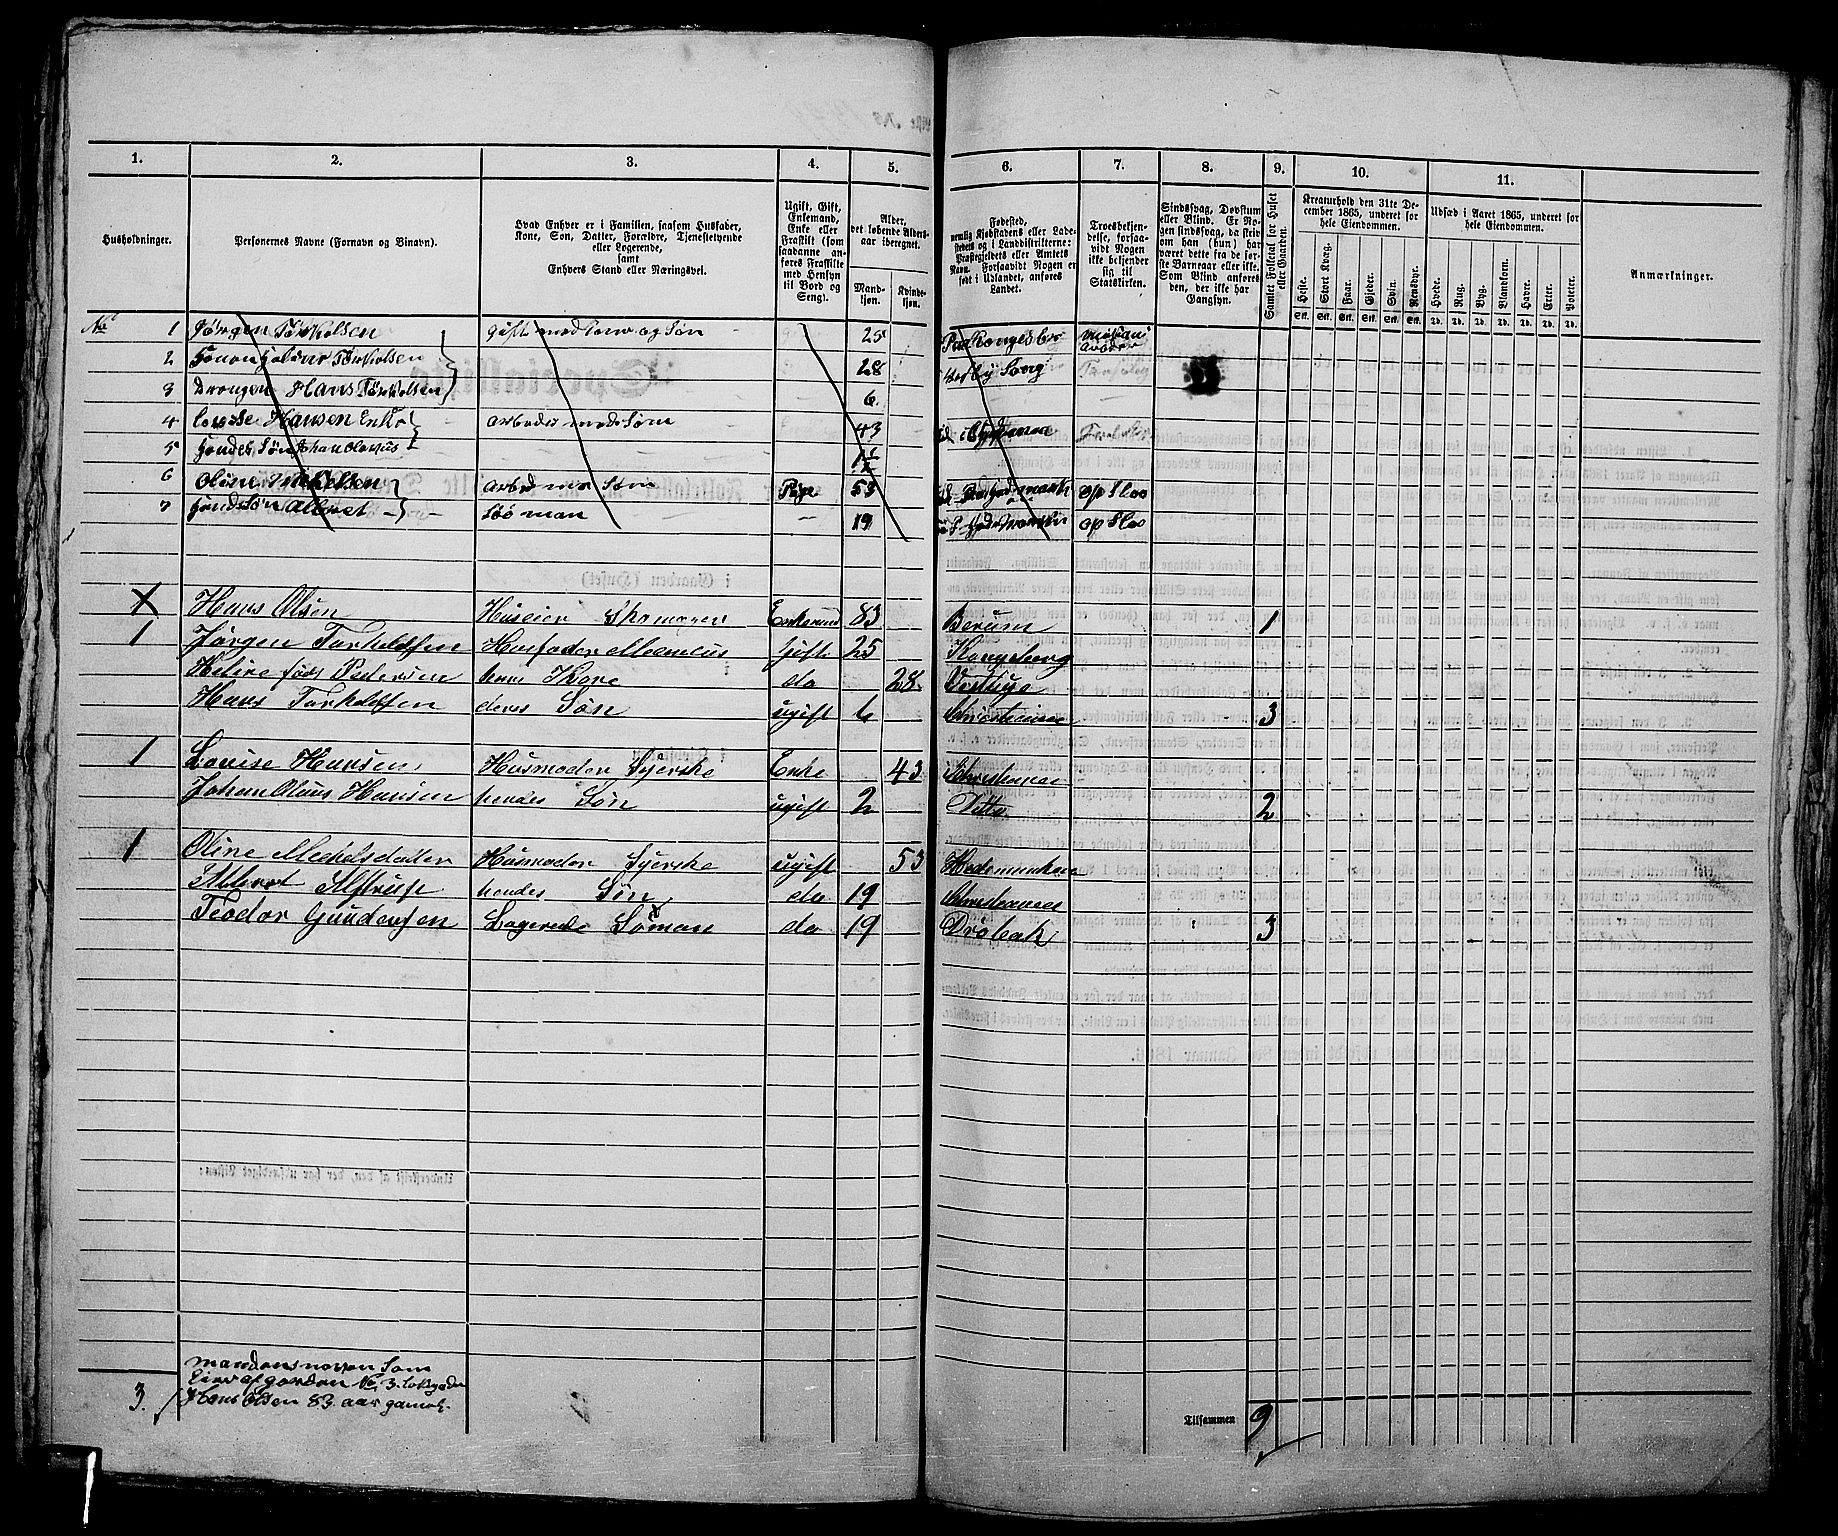 1. 2. 3. 4. 5. 6. 7. 8. 9. 10. 11.
Husholdninger.
Personernes Navne (Fornavn og Binavn).
Hvad Enhver er i Familien, saasom Husfader,
Kone, Søn, Datter, Forældre, Tjenestetyende
eller Logerende,
samt
Enhvers Stand eller Næringsvei.
Ugift, Gift,
Enkemand,
Enke eller
Fraskilt (som
saadanne an-
føres Fraskilte
med Hensyn
til Bord og
Seng).
Alder,
det løbende Alders-
aar iberegnet.
Mand-
kjøn.
Kvinde-
kjøn.
Fødested,
nemlig Kjøbstadens eller Lade-
stedets og i Landdistrikterne:
Præstegjeldets eller Amtets
Navn. Forsaavidt Nogen er
født i Udlandet, anføres
Landet.
Troesbekjen-
delse, forsaa-
vidt Nogen
ikke bekjender
sig til
Statskirken.
Sindssvag, Døvstum
eller Blind. Er No-
gen sindssvag, da skriv
om han (hun) har
været dette fra de før-
ste Barneaar eller ikke.
Som Blind anføres
den, der ikke har
Gangsyn.
Samlet Folketal for Huset
eller Gaarden.
Kreaturhold den 31te De-
cember 1865, underet for
hele Eiendommen.
Heste. Stort Kvæg. Faar. Gjeder. Svin. Rensdyr.
Stk. Stk. Stk. Stk. Stk. Stk.
Udsæd i Aaret 1865, underet for
hele Eiendommen.
Hvede. Rug. Byg. Blandkorn. Havre. Erter. Poteter.
Td. Td. Td. Td. Td. Td. Td.
Anmærkninger.
No 1 Jörgen Törkolsen gift med kone og Søn 25
2 Törkolsen 28
3 Hans Törkolsen 6
4 Lovise Hansen Enke arbeder med Søm 43
5 hendes Søn Johan Olavus 1½
6 Oline arbed med Søm Pige 53 op Sloo
7 hendes Søn Albret Söö man 19 op Sloo
X Hans Olsen Huseier Skomager Enkemand 83 Berum 1
1 Jörgen Torkildsen Husfader Gift 25 Kongsberg
Heline föds Pedersen hans Kone do 28
Hans Torkildsen deres Søn ugift 6 Christiania 3
1 Lovise Hansen Husmoder Syerske Enke 43 Christiania
Johan Olaus Hansen hendes Søn ugift 2 Ditto 2
1 Oline Husmoder Syerske ugift 53 Hedemarken
Albret hendes Søn do 19 Christiania
Teodor Gundersen Logerende Söman do 19 Dröbak 3
Som
eier af gorden No 3
3. Hans Olsen 83 aar gamel.
Tilsammen 9